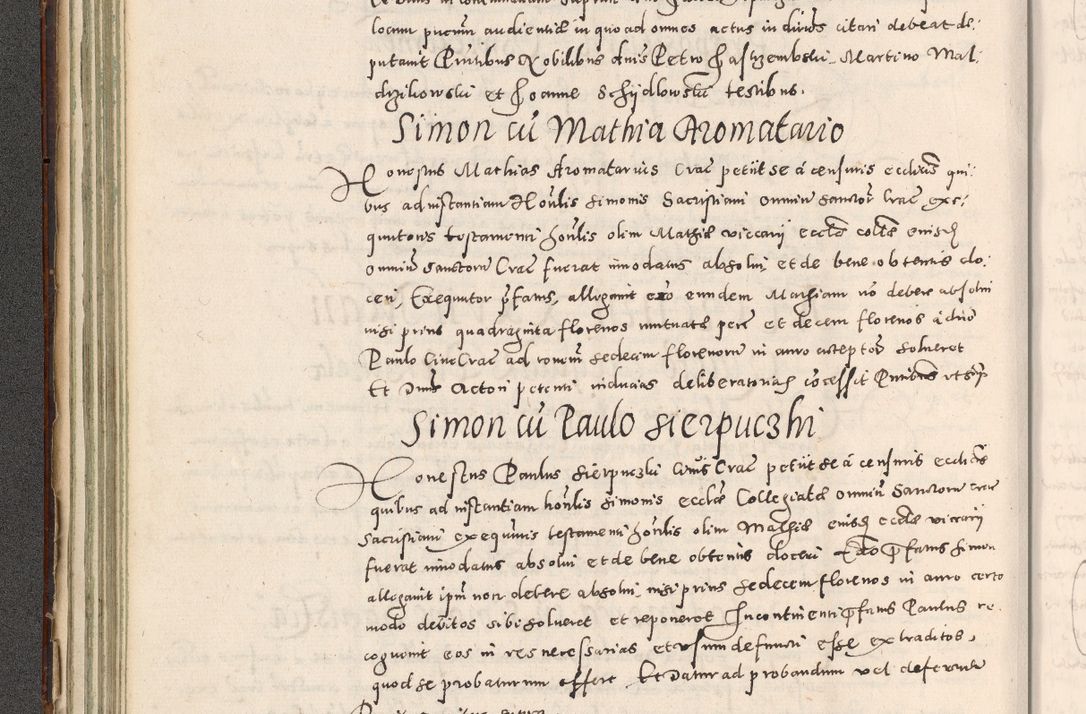 locum putum audientiæ in quo ad omnes actus in diuis citari debeat de:
putauit Pntibus Nobilibus dnis Petro Jastrzembski Martino Mal:
drzikowski et Joanne Schydlowski testibus.
Simon cũ Mathia Aromatario
Honestus Mathias Aromatarius Crac petiit se a censuris ecclicis qui:
bus ad instantiam Honlis Simonis Sacristiani omniũ Sanctorũ Crac exe:
quutoris testamenti honlis olim Mathiæ viccarij eccliæ collæ eiusdẽ
omniũ Sanctorũ Crac fuerat innodatus absolui, et de bene obtentis do:
ceri, Exequutor pfatus, allegauit eundem Mathiam nõ debere absolui
nisi prius quadraginta florenos mutuatæ pecu et decem florenos a dno
Paulo Ciue Crac ad racionẽ sedecim florenorũ in auro acceptos solueret
Et Dnus Actori petenti inducias deliberatorias cõcessit Pntibus vt sup
Simon cũ Paulo Sierpuczki
Honestus Paulus Sierpuczki Ciuis Crac petiit se a censuris ecclicis
quibus ad instantiam honlis Simonis eccliæ Collegiatæ omniũ Sanctorũ Crac
Sacristiani exequutis testamenti honlis olim Mathiæ eiusdẽ eccliæ viccarij
fuerat innodatus absolui et de bene obtentis doceri pfatus Simon
allegauit ipm non debere absolui, nisi prius sedecem florenos in auro certo
modo debitos sibi solueret et reponeret Incontinenti pfatus Paulus re
cognouit eos in res necessarias et vsum defuncti esse extraditos,
quod se probaturum offert Et Datur ad probandum vel deferendũ